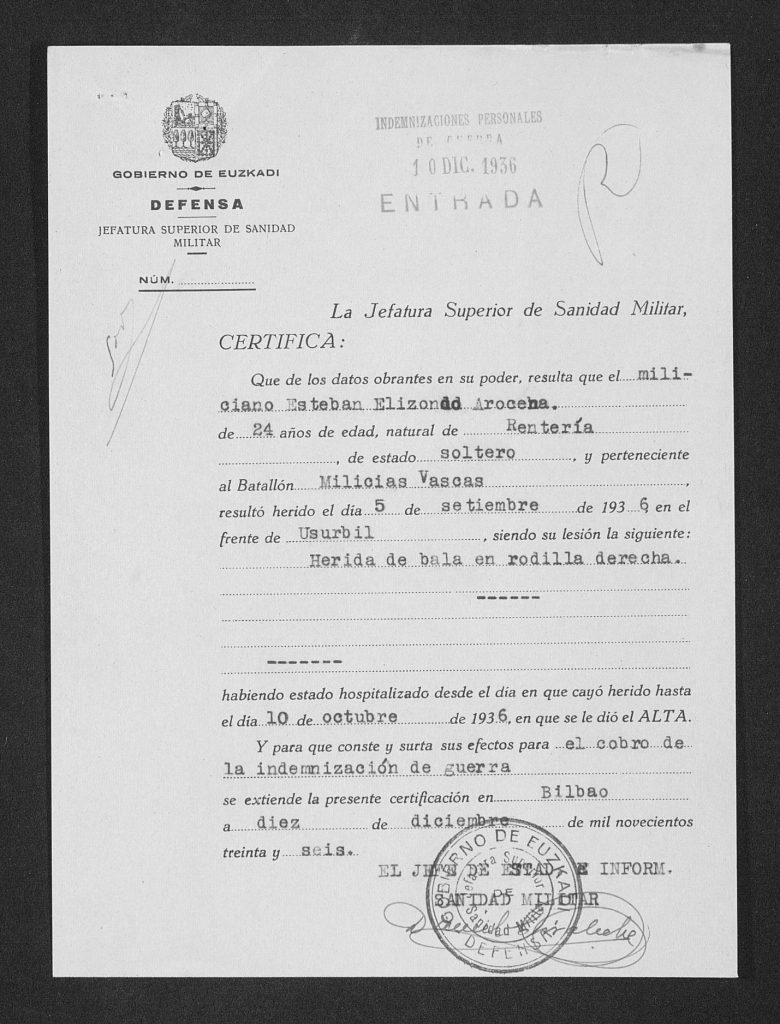 GOBIERNO DE EUZKADI
DEFENSA
JEFATURA SUPERIOR DE SANIDAD
MILITAR
NÚM.
INDEMNIZACIONES PERSONALES
DE GUERRA
10 DIC. 1936
ENTRADA
La Jefatura Superior de Sanidad Militar,
CERTIFICA:
Que de los datos obrantes en su poder, resulta que el mili-
ciano Esteban Elizondo Arocena.
de 24 años de edad, natural de Rentería
, de estado soltero, y perteneciente
al Batallón Milicias Vascas,
resultó herido el día 5 de setiembre de 1936, en el
frente de Usurbil, siendo su lesión la siguiente:
Herida de bala en rodilla derecha.
------
-------
habiendo estado hospitalizado desde el día en que cayó herido hasta
el día 10 de octubre de 1936, en que se le dió el ALTA.
Y para que conste y surta sus efectos para el cobro de
la indemnización de guerra
se extiende la presente certificación en Bilbao
a diez de diciembre de mil novecientos
treinta y seis.
EL JEFE DE ESTAD E INFORM.
SANIDAD MILITAR
GOBIERNO DE EUZKADI
Jefatura Superior
DE
Sanidad Militar
DEFENSA